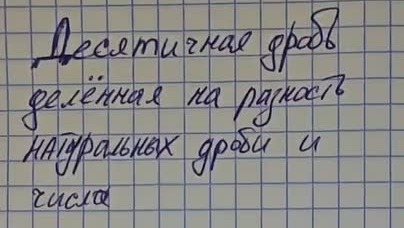 Десятичная дробь
делённая на разность
натуральных дроби и
числа